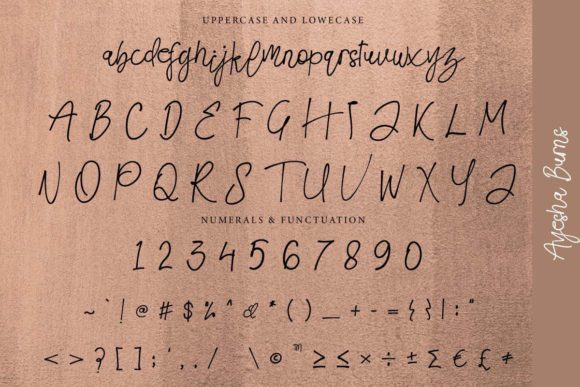 UPPERCASE AND LOWECASE
abcdefghijklmnopqrstuvwxyz
A B C D E F G H I J K L M
N O P Q R S T U V W X Y Z
NUMERALS & FUNCTUATION
1 2 3 4 5 6 7 8 9 0
~ ` ! @ # $ % ^ & * ( ) _ + - = { } | : "
< > ? [ ] ; ' , . / \ © ™ ≥ ≤ × ÷ ± Σ € £ ≠
Ayesha Burns